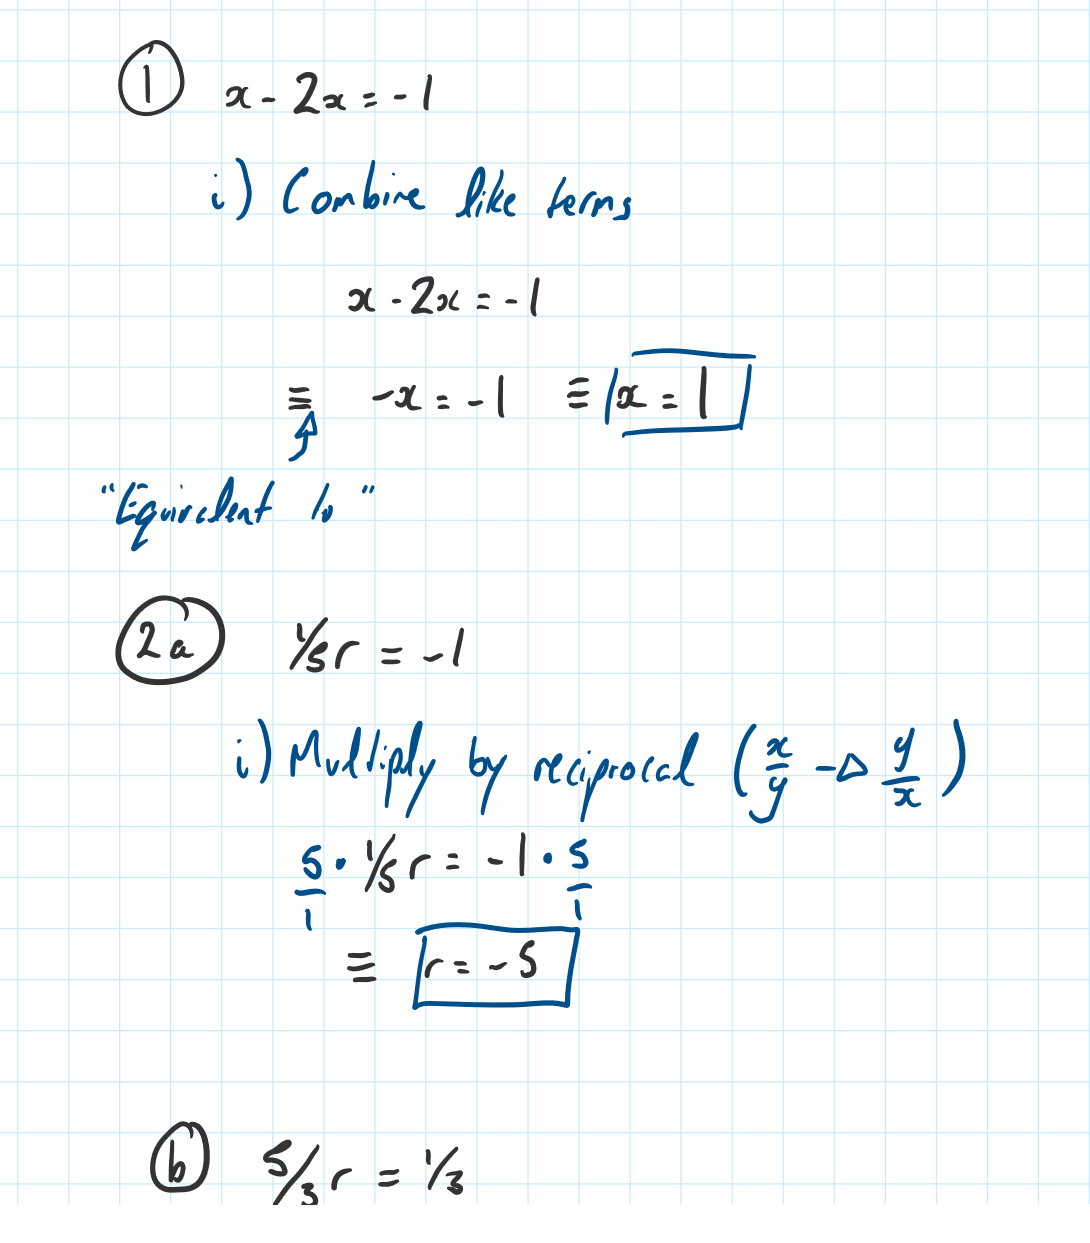 1 x - 2x = -1
i) Combine like terms
x - 2x = -1
≡ -x = -1 ≡ x = 1
"Equivalent to"
2a 1/5 r = -1
i) Multiply by reciprocal (x/y → y/x)
5/1 · 1/5 r = -1 · 5/1
≡ r = -5
b 5/3 r = 1/3